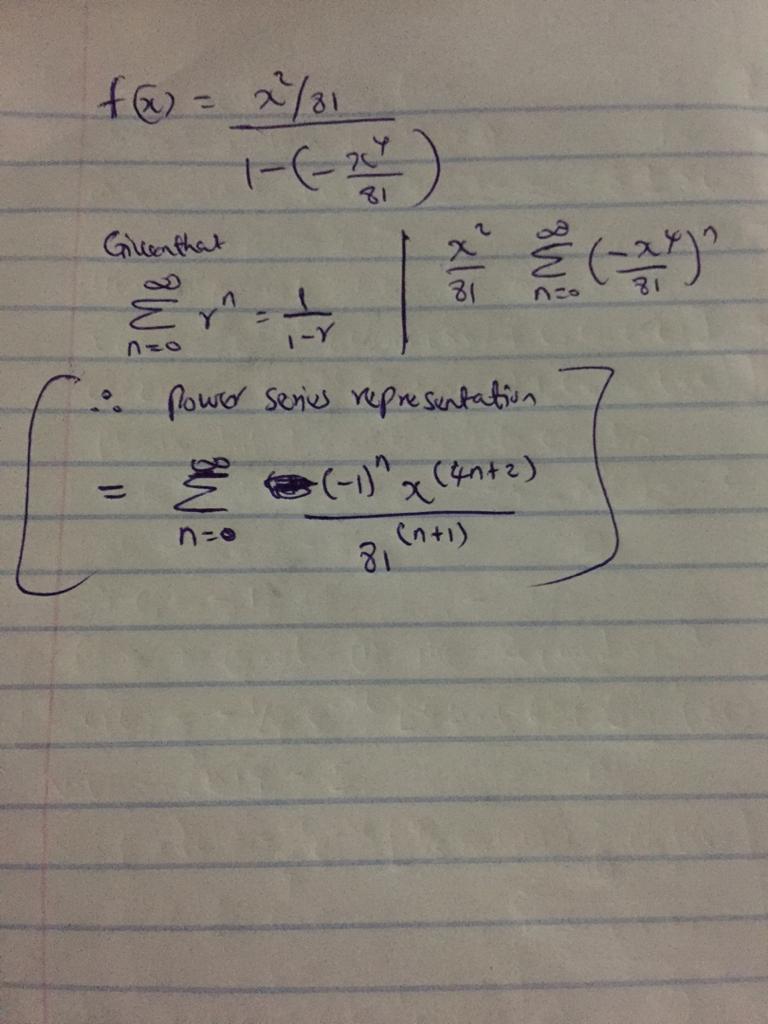 f(x) = x²/81 / (1-(-x⁴/81))
Given that
∞ Σ n=0 rⁿ = 1/(1-r) | x²/81 ∞ Σ n=0 (-x⁴/81)ⁿ
∴ Power series representation
= ∞ Σ n=0 (-1)ⁿ x^(4n+2) / 81^(n+1)